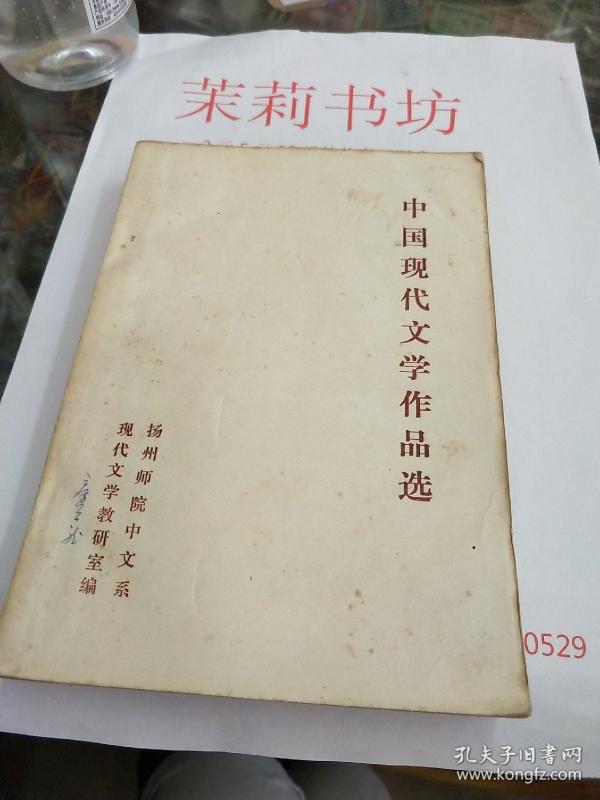 茉莉书坊
中国现代文学作品选
扬州师院中文系
现代文学教研室编
0529
孔夫子旧书网
www.kongfz.com